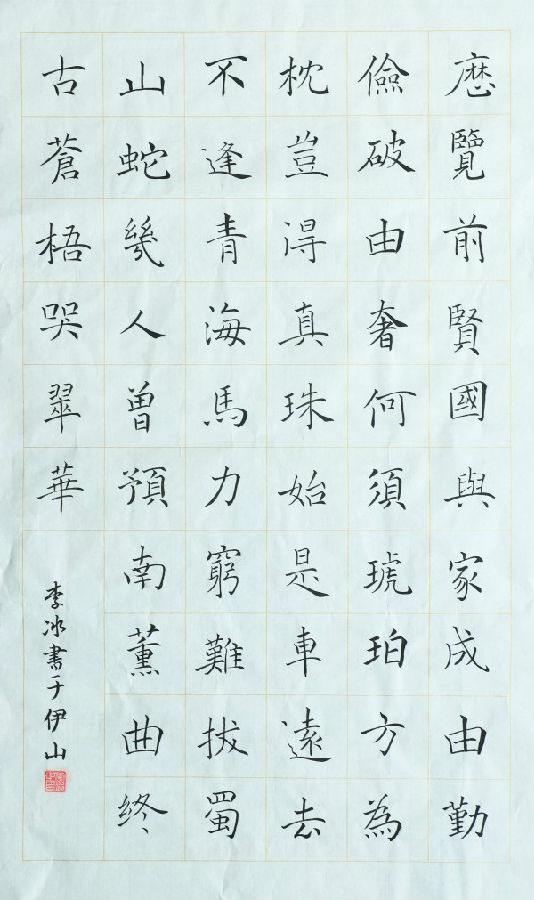 厯覽前賢國與家成由勤
儉破由奢何須琥珀方為
枕豈得真珠始是車遠去
不逢青海馬力窮難拔蜀
山蛇幾人曾預南薰曲終
古蒼梧哭翠華
李冰書于伊山